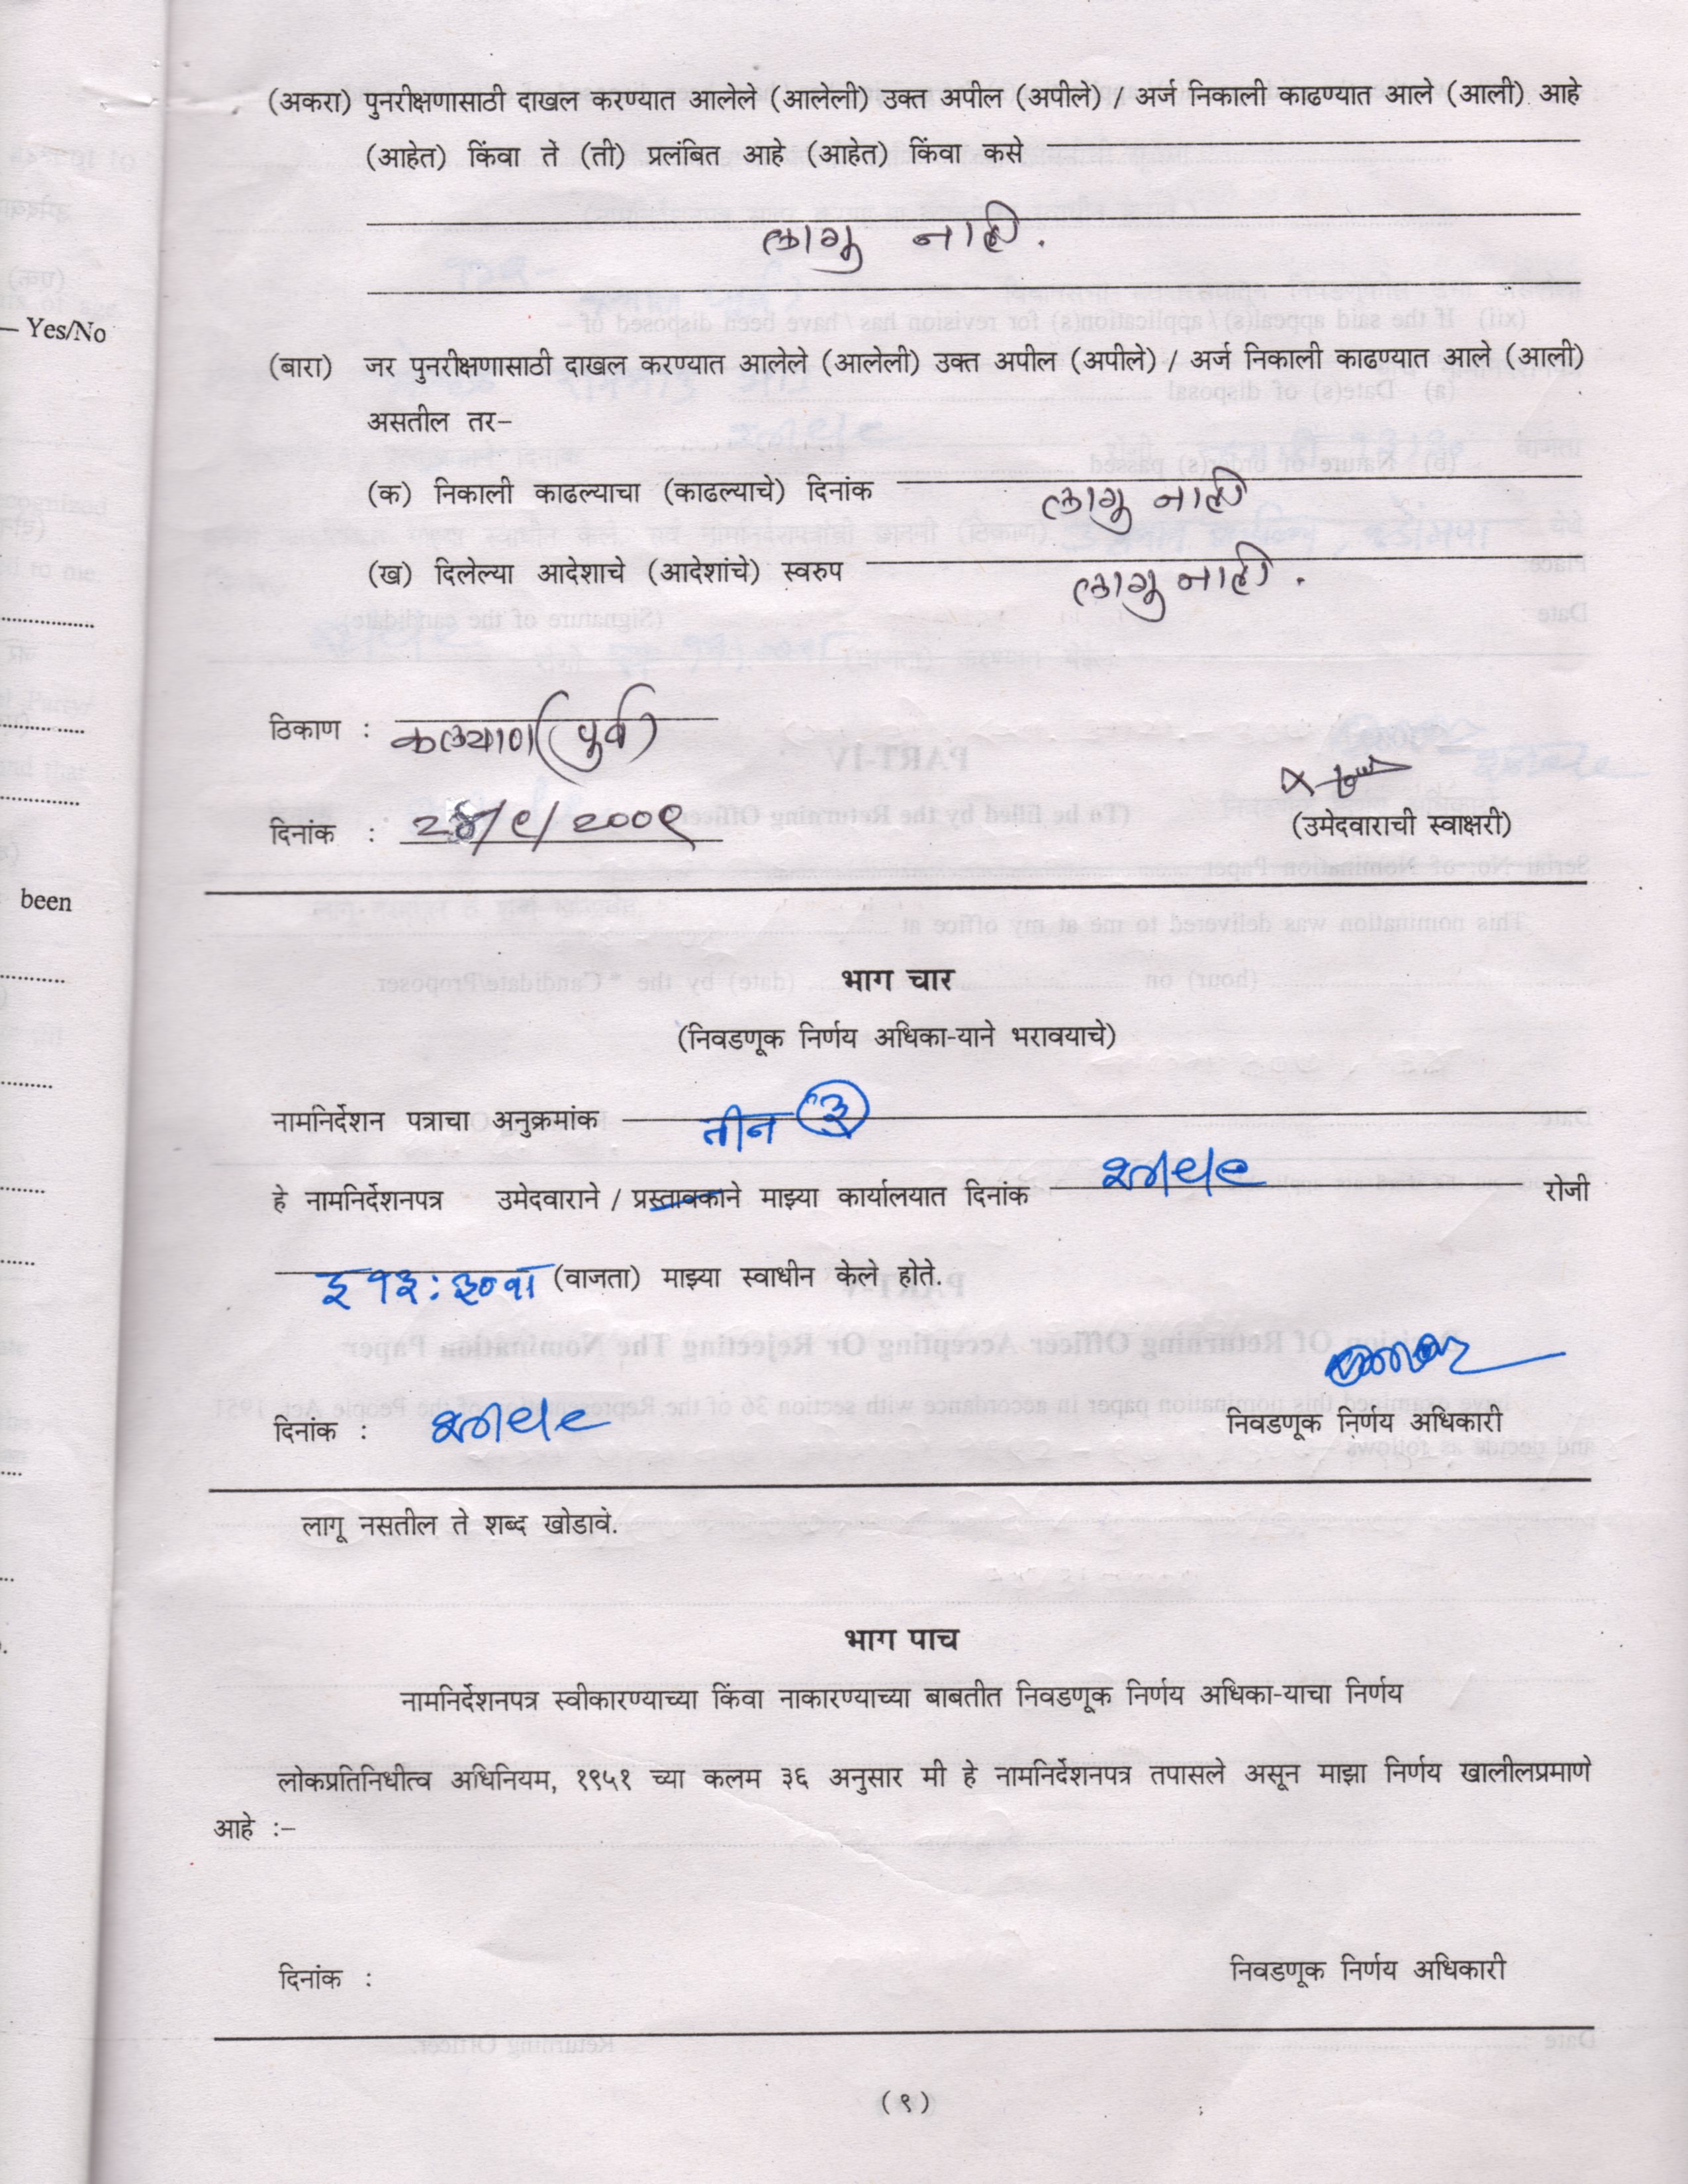 (अकरा) पुनरीक्षणासाठी दाखल करण्यात आलेले (आलेली) उक्त अपील (अपीले) / अर्ज निकाली काढण्यात आले (आली) आहे
(आहेत) किंवा ते (ती) प्रलंबित आहे (आहेत) किंवा कसे
लागू नाही.
– Yes/No
(बारा) जर पुनरीक्षणासाठी दाखल करण्यात आलेले (आलेली) उक्त अपील (अपीले) / अर्ज निकाली काढण्यात आले (आली)
असतील तर–
(क) निकाली काढल्याचा (काढल्याचे) दिनांक लागू नाही
(ख) दिलेल्या आदेशाचे (आदेशांचे) स्वरुप लागू नाही.
ठिकाण : कल्याण (पुर्व)
दिनांक : /९/२००९
(उमेदवाराची स्वाक्षरी)
been
भाग चार
(निवडणूक निर्णय अधिका-याने भरावयाचे)
नामनिर्देशन पत्राचा अनुक्रमांक तीन ३
हे नामनिर्देशनपत्र उमेदवाराने / प्रस्तावकाने माझ्या कार्यालयात दिनांक रोजी
१३:३० वा (वाजता) माझ्या स्वाधीन केले होते.
दिनांक :
निवडणूक निर्णय अधिकारी
लागू नसतील ते शब्द खोडावे.
भाग पाच
नामनिर्देशनपत्र स्वीकारण्याच्या किंवा नाकारण्याच्या बाबतीत निवडणूक निर्णय अधिका-याचा निर्णय
लोकप्रतिनिधीत्व अधिनियम, १९५१ च्या कलम ३६ अनुसार मी हे नामनिर्देशनपत्र तपासले असून माझा निर्णय खालीलप्रमाणे
आहे :–
दिनांक :
निवडणूक निर्णय अधिकारी
(९)